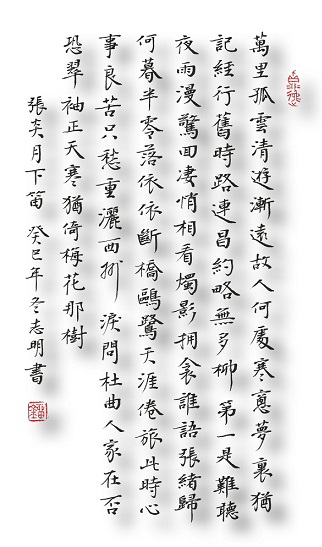 萬里孤雲清游漸遠故人何處寒窓夢裏猶
記經行舊時路連昌約略無多柳第一是難聽
夜雨漫驚囬凄悄相看燭影拥衾誰語張緒歸
何暮半零落依依斷橋鷗鷺天涯倦旅此時心
事良苦只愁重灑西州淚問杜曲人家在否
恐翠袖正天寒猶倚梅花那樹
張炎月下笛 癸巳年冬志明書